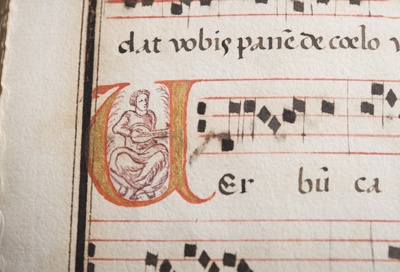 dat vobis panē de cœlo v
VEr bū ca